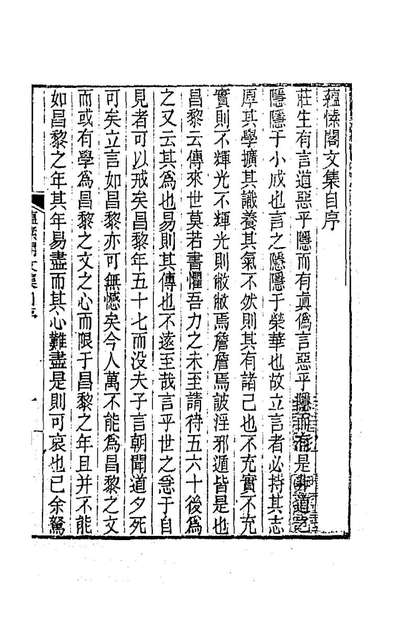 蘊愫閣文集自序
莊生有言道惡乎隱而有真僞言惡乎隱而有是非道之
隱隱于小成也言之隱隱于榮華也故立言者必持其志
厚其學擴其識養其氣不然則其有諸己也不充實不充
實則不輝光不輝光則敝敝焉詹詹焉詖淫邪遁皆是也
昌黎云傳來世莫若書懼吾力之未至請待五六十後爲
之又云其爲也易則其傳也不遠至哉言乎世之急于自
見者可以戒矣昌黎年五十七而没夫子言朝聞道夕死
可矣立言如昌黎亦可無憾矣今人萬不能爲昌黎之文
而或有學爲昌黎之文之心而限于昌黎之年且并不能
如昌黎之年其年易盡而其心難盡是則可哀也已余駑